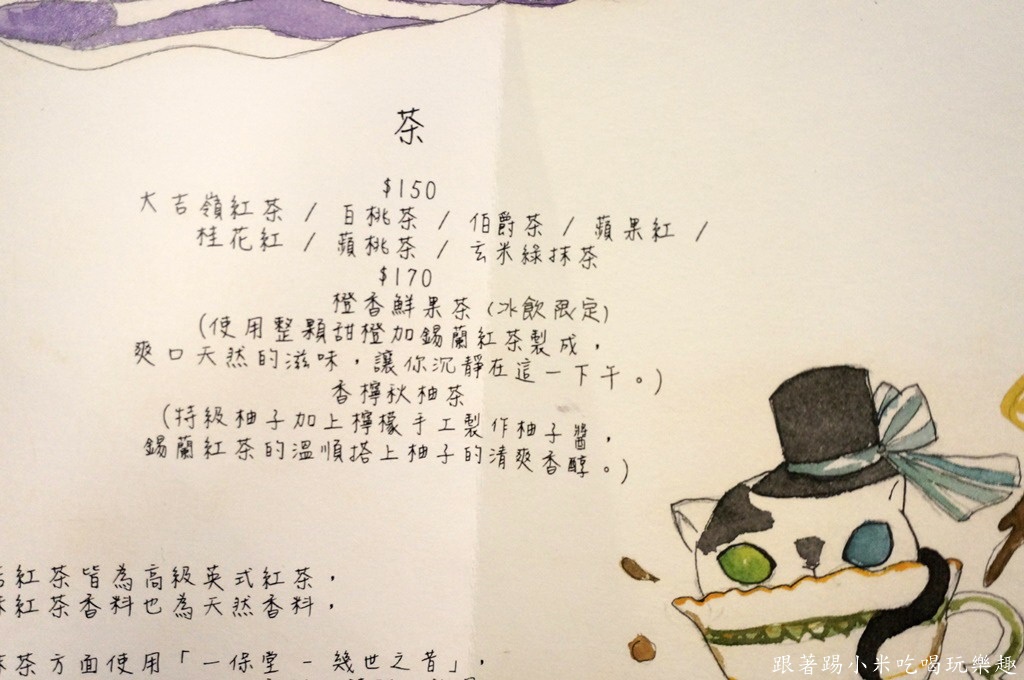 茶
$150
大吉嶺紅茶 / 白桃茶 / 伯爵茶 / 蘋果紅 /
桂花紅 / 蘋桃茶 / 玄米綠抹茶
$170
橙香鮮果茶 (冰飲限定)
(使用整顆甜橙加錫蘭紅茶製成，
爽口天然的滋味，讓你沉靜在這一下午。)
香檸秋柚茶
(特級柚子加上檸檬手工製作柚子醬，
錫蘭紅茶的溫順搭上柚子的清爽香醇。)
紅茶皆為高級英式紅茶，
紅茶香料也為天然香料，
茶方面使用「一保堂 - 幾世之昔」，
跟著踢小米吃喝玩樂趣